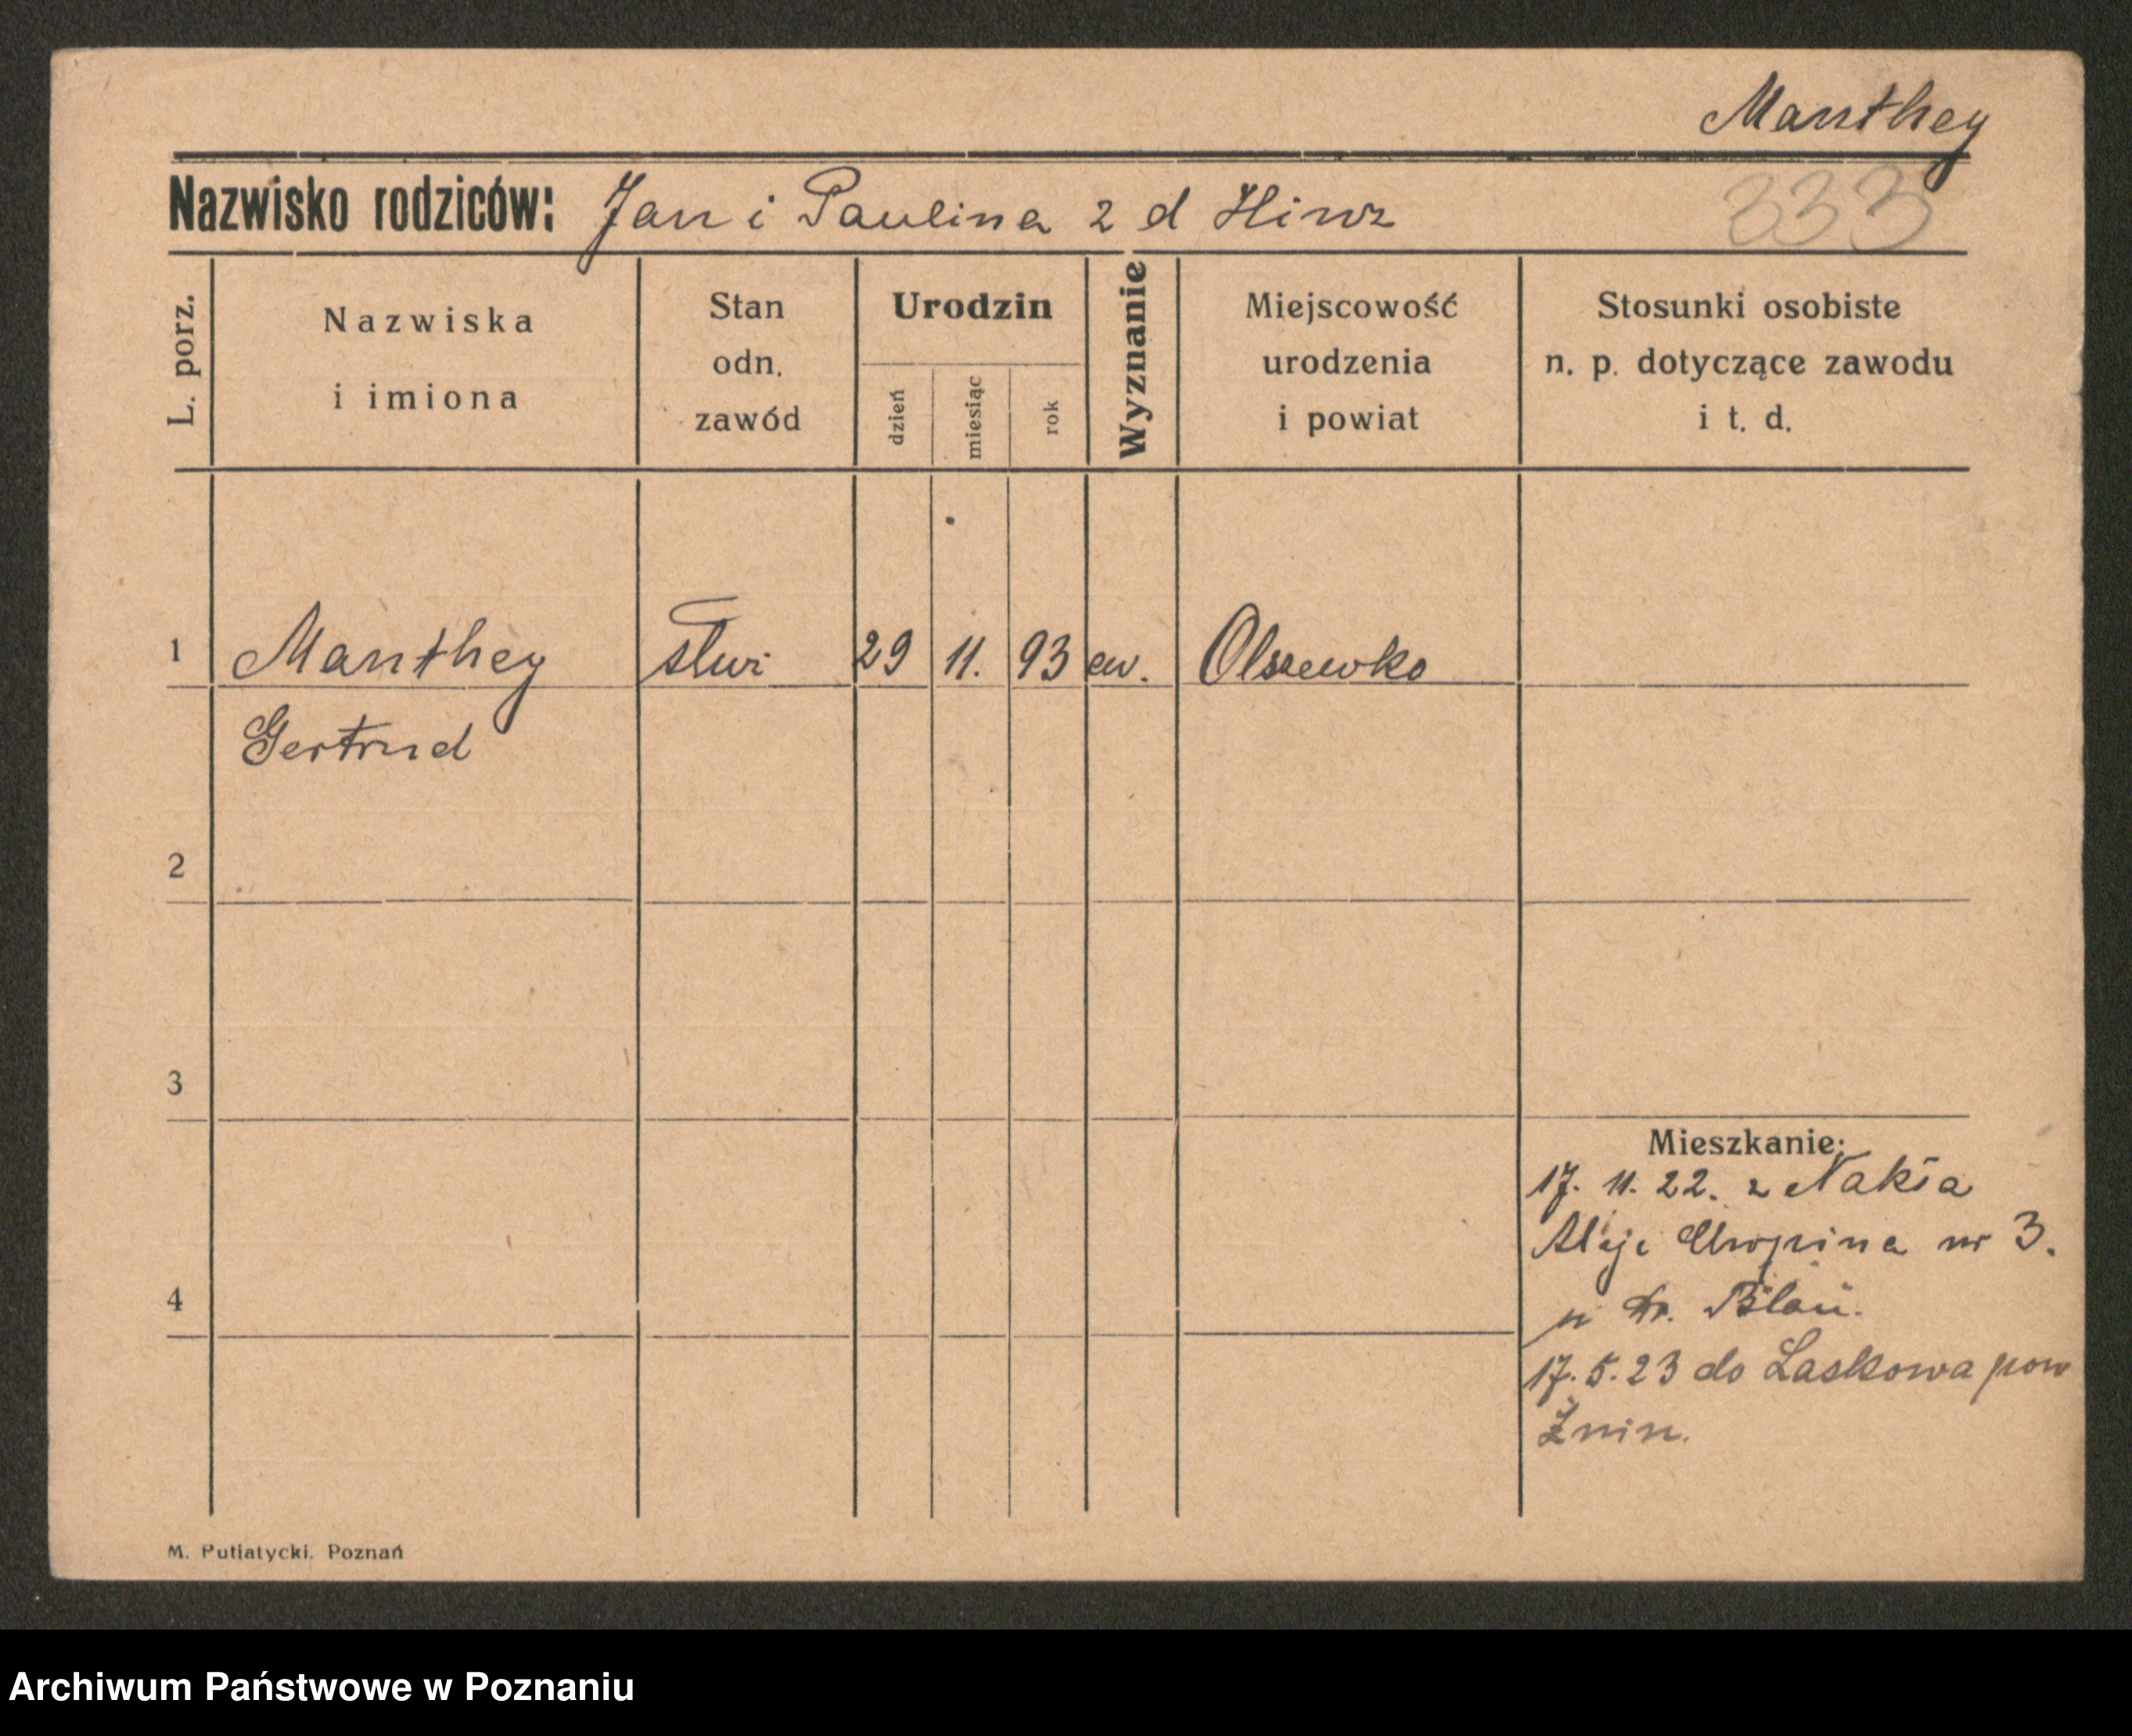 Manthey
333
Nazwisko rodziców: Jan i Paulina z d Hinz
L. porz.
Nazwiska
i imiona
Stan
odn.
zawód
Urodzin
dzień
miesiąc
rok
Wyznanie
Miejscowość
urodzenia
i powiat
Stosunki osobiste
n. p. dotyczące zawodu
i t. d.
1 Manthey 29 11. 93 ew. Olszewko
Gertrud
2
3
Mieszkanie:
17. 11. 22. z Nakła
Aleje Chopina nr 3.
u Dr. Blau.
4
17. 5. 23 do Laskowa pow
Żnin.
M. Putiatycki. Poznań
Archiwum Państwowe w Poznaniu